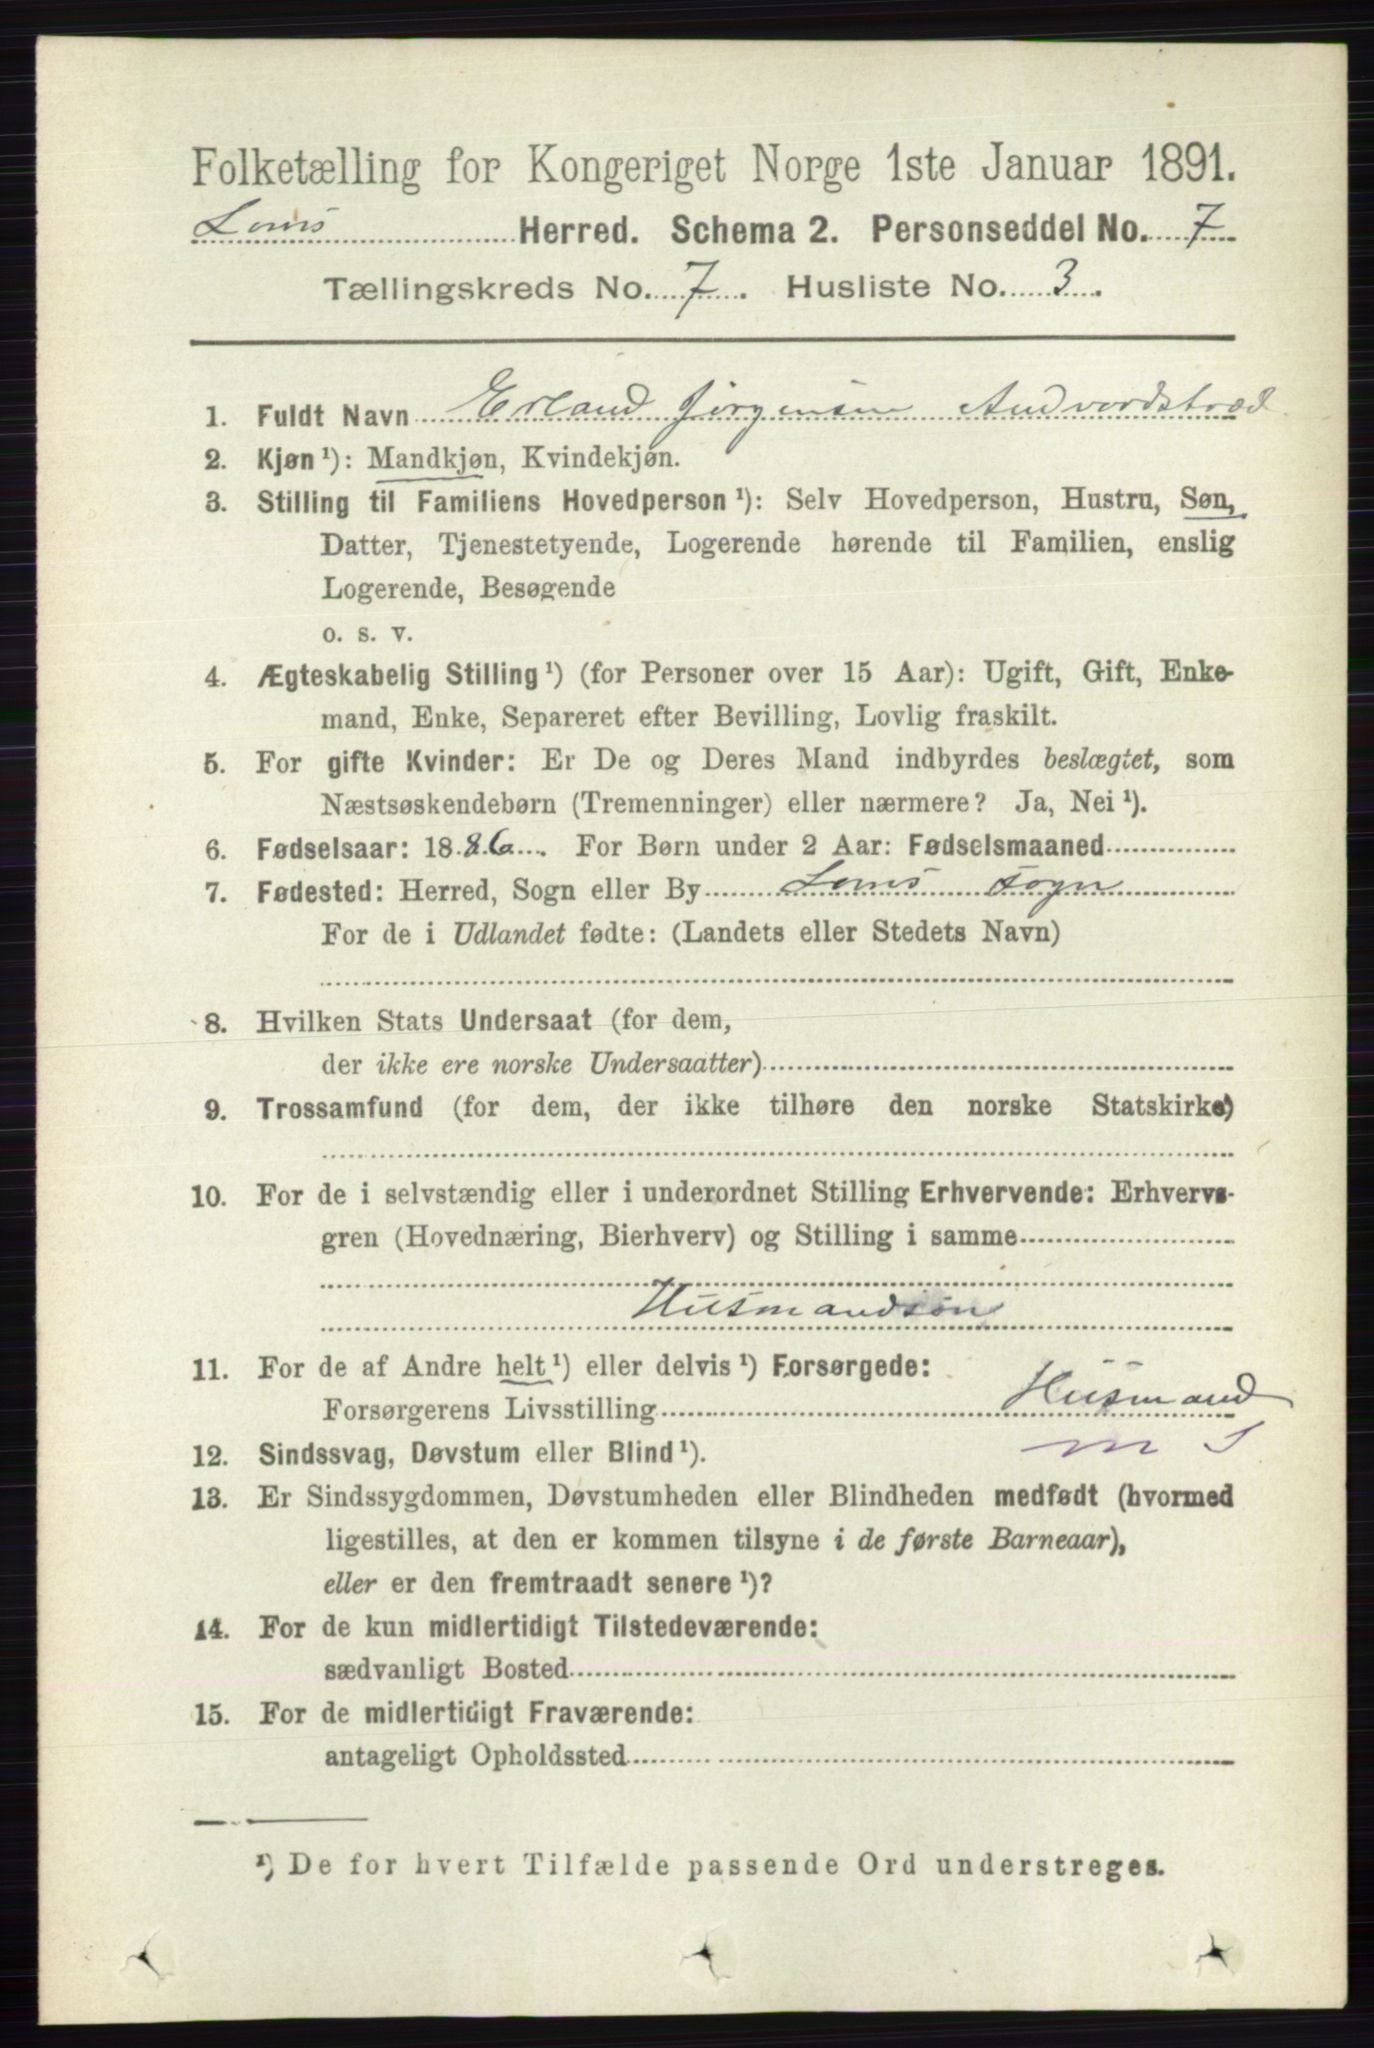 Folketælling for Kongeriget Norge 1ste Januar 1891.
Loms Herred. Schema 2. Personseddel No. 7
Tællingskreds No. 7. Husliste No. 3.
1. Fuldt Navn Erland Jörgensen Andvordstræd
2. Kjøn ¹): Mandkjøn, Kvindekjøn.
3. Stilling til Familiens Hovedperson ¹): Selv Hovedperson, Hustru, Søn,
Datter, Tjenestetyende, Logerende hørende til Familien, enslig
Logerende, Besøgende
o. s. v.
4. Ægteskabelig Stilling ¹) (for Personer over 15 Aar): Ugift, Gift, Enke-
mand, Enke, Separeret efter Bevilling, Lovlig fraskilt.
5. For gifte Kvinder: Er De og Deres Mand indbyrdes beslægtet, som
Næstsøskendebørn (Tremenninger) eller nærmere? Ja, Nei ¹).
6. Fødselsaar: 1886. For Børn under 2 Aar: Fødselsmaaned
7. Fødested: Herred, Sogn eller By Loms sogn
For de i Udlandet fødte: (Landets eller Stedets Navn)
8. Hvilken Stats Undersaat (for dem,
der ikke ere norske Undersaatter)
9. Trossamfund (for dem, der ikke tilhøre den norske Statskirke)
10. For de i selvstændig eller i underordnet Stilling Erhvervende: Erhvervs-
gren (Hovednæring, Bierhverv) og Stilling i samme
Husmandsön
11. For de af Andre helt ¹) eller delvis ¹) Forsørgede:
Forsørgerens Livsstilling Husmand
12. Sindssvag, Døvstum eller Blind ¹). m S
13. Er Sindssygdommen, Døvstumheden eller Blindheden medfødt (hvormed
ligestilles, at den er kommen tilsyne i de første Barneaar),
eller er den fremtraadt senere ¹)?
14. For de kun midlertidigt Tilstedeværende:
sædvanligt Bosted
15. For de midlertidigt Fraværende:
antageligt Opholdssted
¹) De for hvert Tilfælde passende Ord understreges.